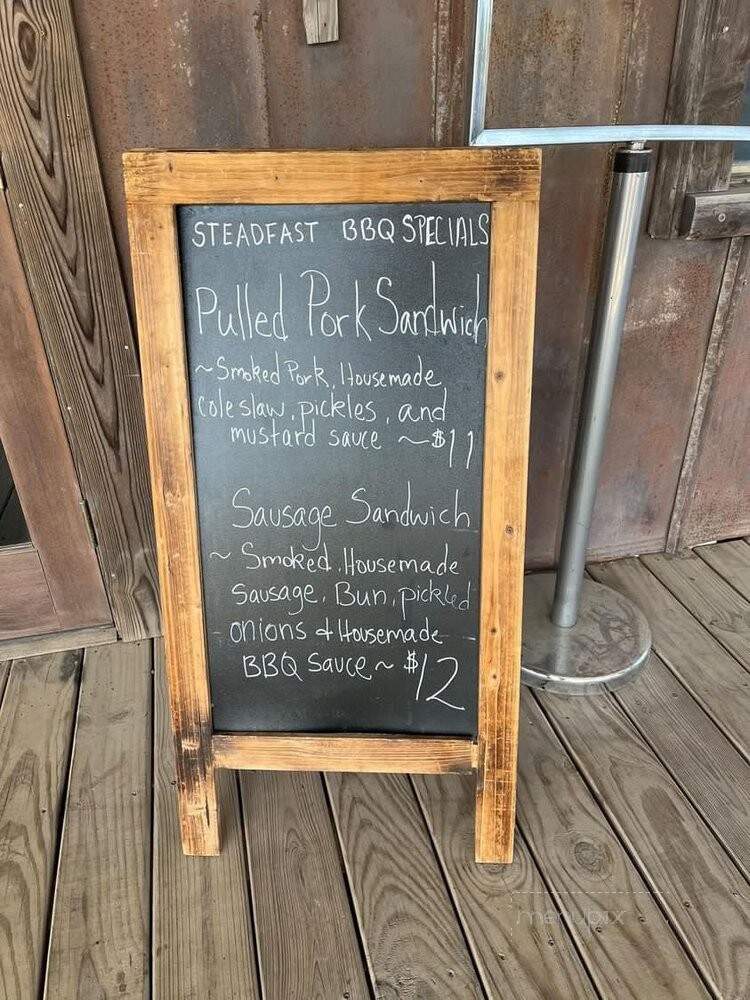 STEADFAST BBQ SPECIALS
Pulled Pork Sandwich
~Smoked Pork, Housemade
coleslaw, pickles, and
mustard sauce ~$11
Sausage Sandwich
~ Smoked, Housemade
Sausage, Bun, pickled
onions & Housemade
BBQ Sauce ~ $12
menupix